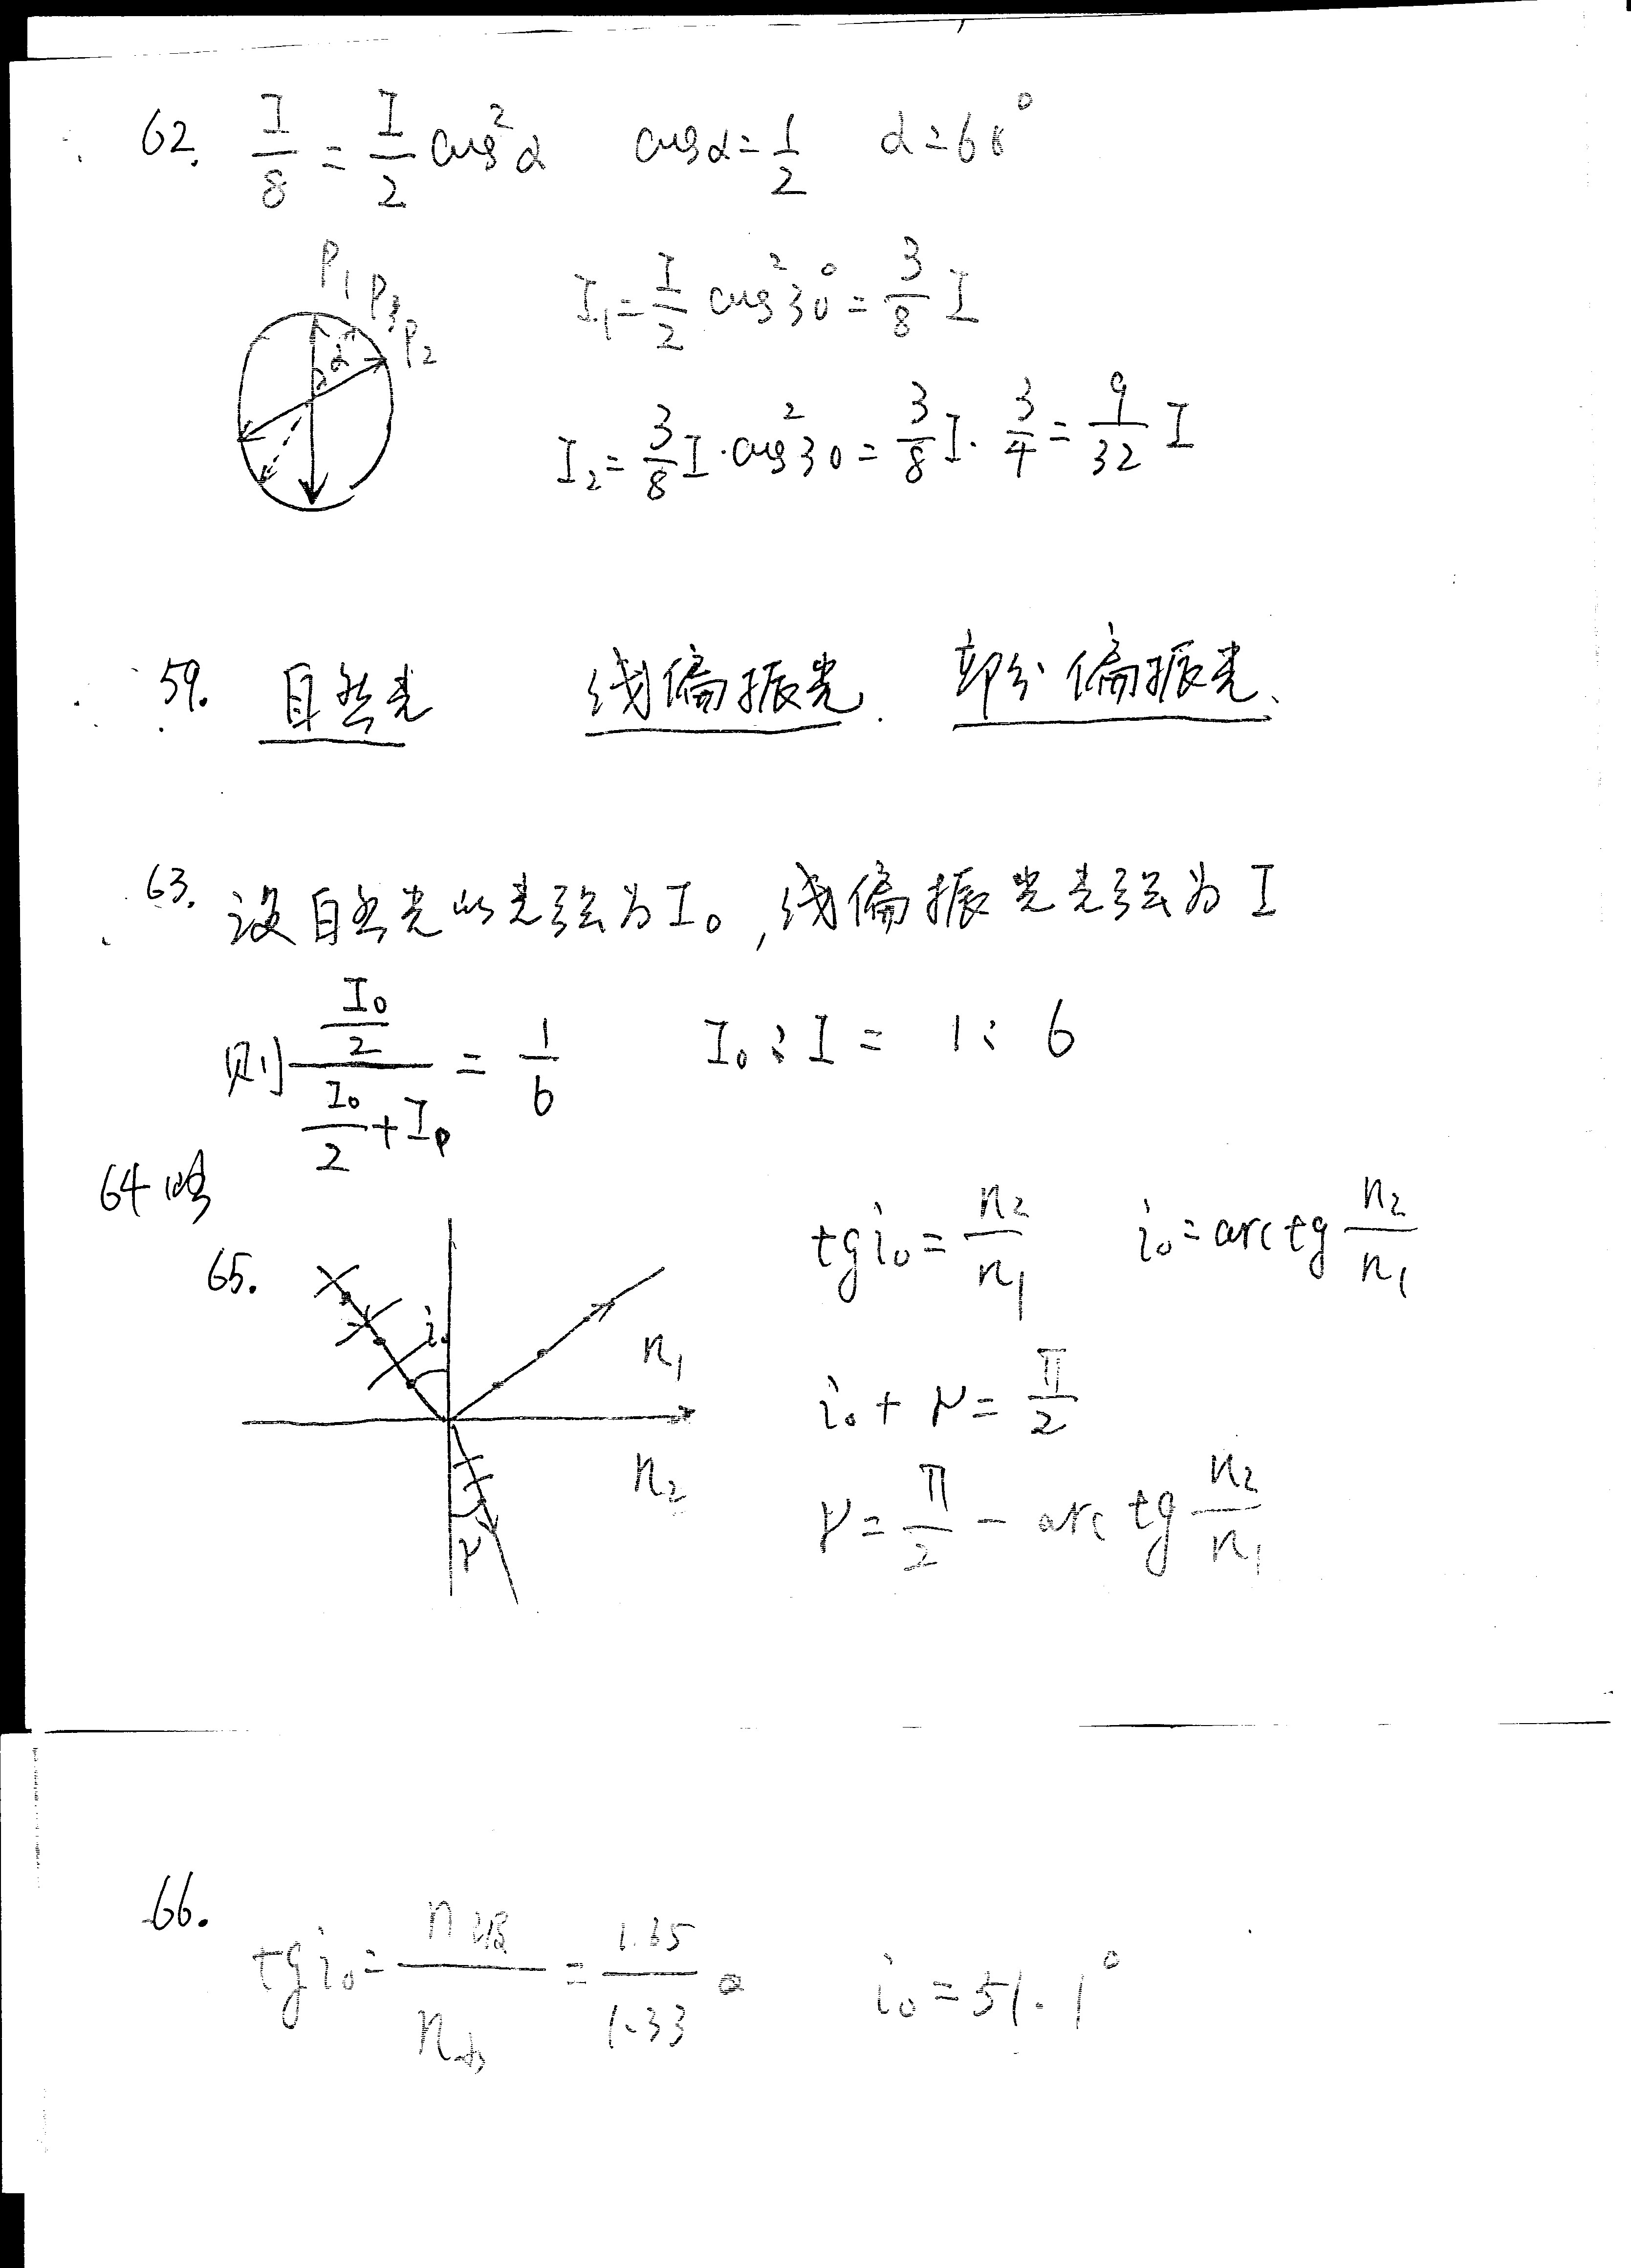 62. I/8 = I/2 cos²α cosα = 1/2 α = 60°
P₁ P₃ P₂
α α
I₁ = I/2 cos²30° = 3/8 I
I₂ = 3/8 I · cos²30 = 3/8 I · 3/4 = 9/32 I
59. 自然光 线偏振光. 部分偏振光.
63. 设自然光的光强为I₀, 线偏振光光强为I
则 (I₀/2)/(I₀/2 + Iₚ) = 1/6 I₀ : I = 1 : 6
64 略
65. tg i₀ = n₂/n₁ i₀ = arctg n₂/n₁
i₀
n₁
i₀ + r = π/2
n₂
r
r = π/2 - arctg n₂/n₁
66. tg i₀ = n玻/n水 = 1.65/1.33 i₀ = 51.1°